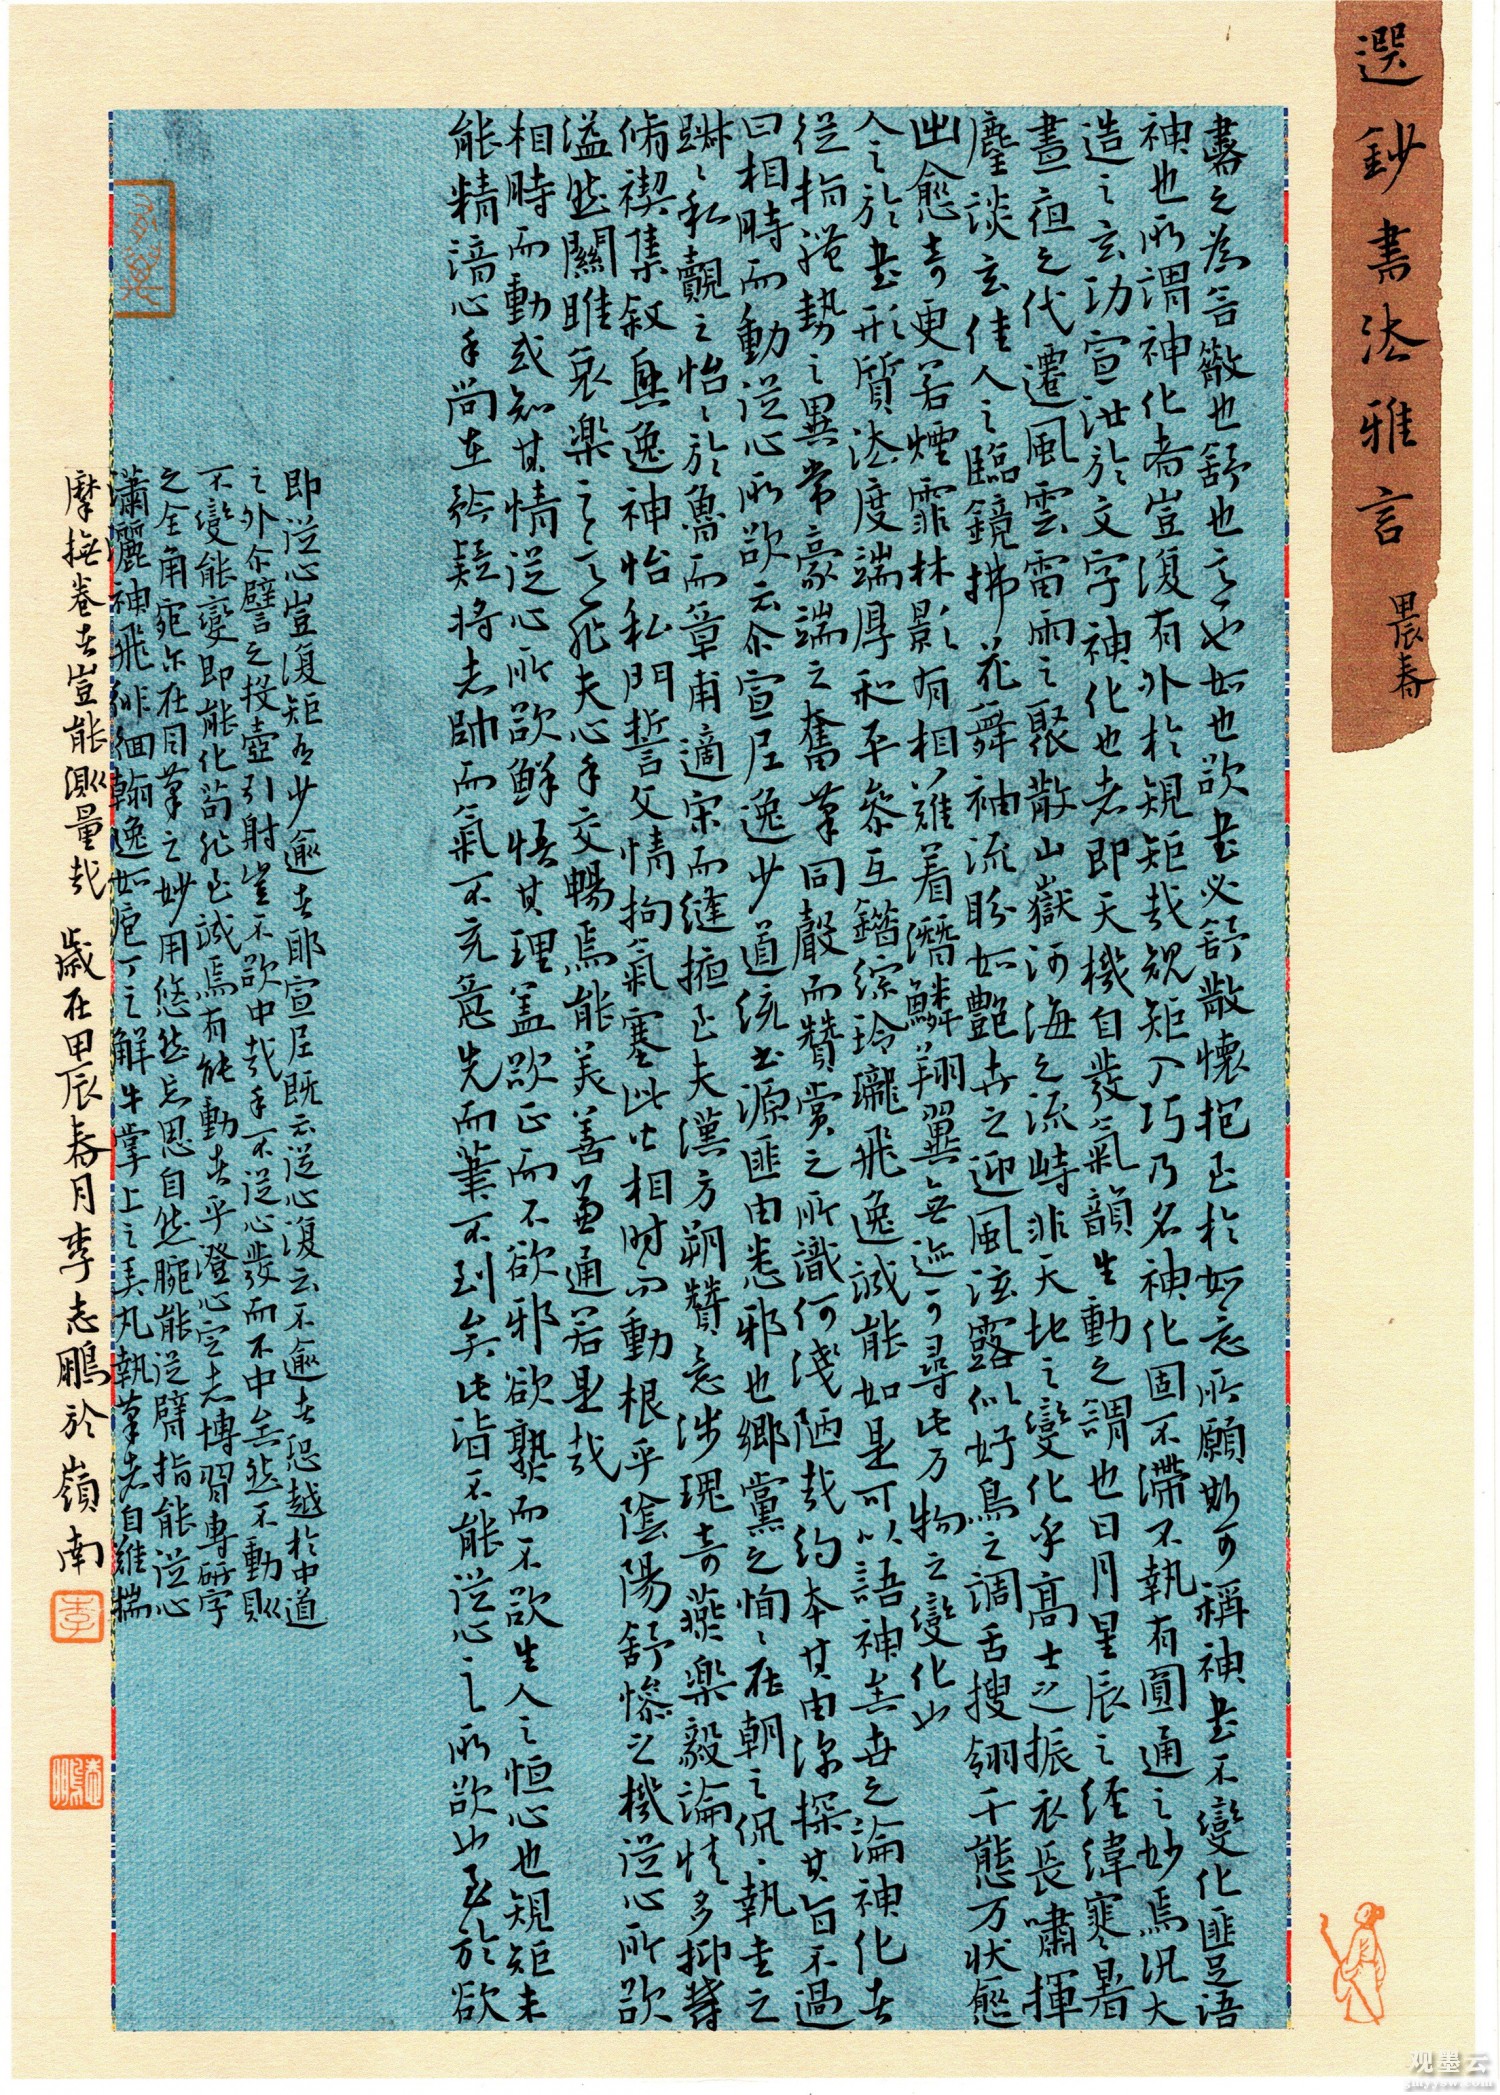 選鈔書法雅言
甲辰春
書之為言散也舒也意也如也欲書必舒散懷抱至於如意所願斯可稱神書不變化匪足語
神也所謂神化者豈復有外於規矩哉規矩入巧乃名神化固不滯不執有圓通之妙焉況大
造之玄功宣洩於文字神化也者即天機自發氣韻生動之謂也日月星辰之經緯寒暑
晝夜之代遷風雲雷雨之聚散山嶽河海之流峙非天地之變化乎高士之振衣長嘯揮
麈談玄佳人之臨鏡拂花舞袖流盼如艷卉之迎風泫露似好鳥之調舌搜翎千態万狀愈
出愈奇更若煙霏林影有相難着潛鱗翔翼無迹可尋此万物之變化山
人之於書形質法度端厚和平參互錯綜玲瓏飛逸誠能如是可以語神矣世之論神化者
徒指體勢之異常豪端之奮筆同聲而贊賞之所識何淺陋哉約本其由深探其旨不過
曰相時而動從心所欲云尒宣尼逸少道統書源匪由悉邪也鄉黨之恂〻在朝之侃〻執圭之
踧〻私覿之怡〻於魯而章甫適宋而縫掖至夫漢方朔贊〻意涉瑰奇燕樂毅論情多抑鬱
脩禊集敘興逸神怡私門誓文情拘氣塞此皆相時而動根乎陰陽舒慘之機從心所欲
溢然關雎哀樂之意非夫心手交暢焉能美善兼通若是哉
相時而動或知其情從心所欲鮮悟其理蓋欲正而不欲邪欲熟而不欲生人之恒心也規矩未
能精諳心手尚在矜疑將志帥而氣不充意先而筆不到矣此皆不能從心之所欲也至於欲
即從心豈復矩有少逾者耶宣尼既云從心復云不逾者恐越於中道
之外尒譬之投壺引射豈不欲中哉手不從心發而不中矣然不動則
不變能變即能化苟非至誠焉有能動者乎澄心定志博習專研字
之全角宛尒在目筆之妙用悠然忘思自然腕能從臂指能從心
瀟灑神飛徘徊翰逸如庖丁之解牛掌上之弄丸執筆者自難揣
摩撫卷者豈能測量哉 歲在甲辰春月李志鵬於嶺南
李
志鵬
观墨云
gmyyow.com